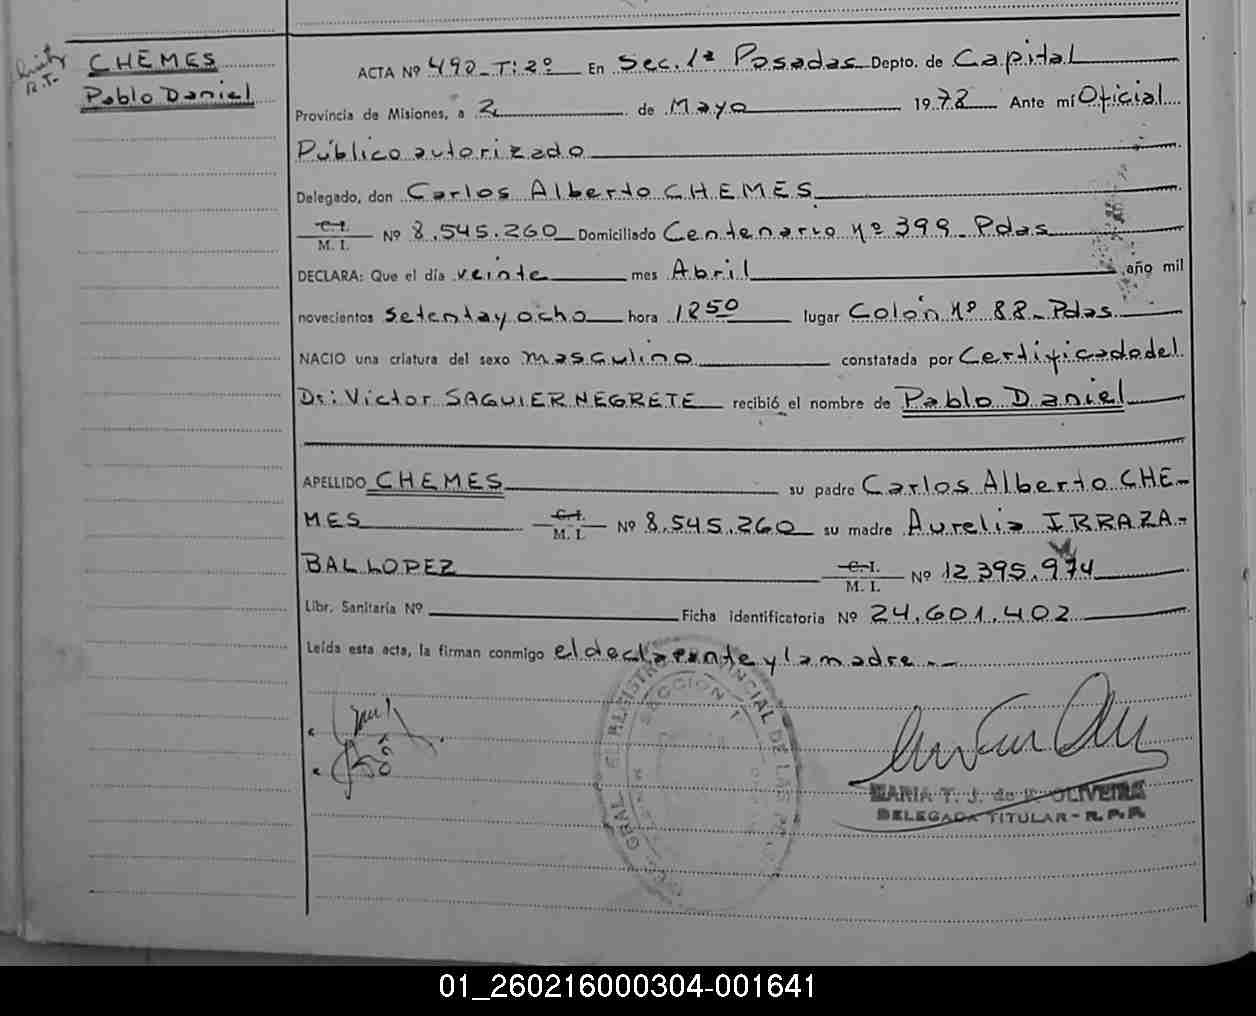 CHEMES
Pablo Daniel
R.T.
ACTA Nº 490 - T: 2º En Sec. 1ª Posadas Depto. de Capital
Provincia de Misiones, a 2 de Mayo 1978 Ante mí Oficial
Público autorizado
Delegado, don Carlos Alberto CHEMES
C.I. M. I. Nº 8.545.260 Domiciliado Centenario Nº 399 - Pdas
DECLARA: Que el día veinte mes Abril año mil
novecientos setentayocho hora 1250 lugar Colón Nº 88 - Pdas.
NACIO una criatura del sexo masculino constatada por Certificadodel
Dr: Victor SAGUIER NEGRETE recibió el nombre de Pablo Daniel
APELLIDO CHEMES su padre Carlos Alberto CHE-
MES C.I. M. I. Nº 8.545.260 su madre Aurelia IRRAZA-
BAL LOPEZ C.I. M. I. Nº 12.395.974
Libr. Sanitaria Nº Ficha identificatoria Nº 24.601.402
Leída esta acta, la firman conmigo el declarante y la madre. --
SECCION 1
MARIA T. J. de OLIVEIRA
DELEGADA TITULAR - R.P.P.
01_260216000304-001641